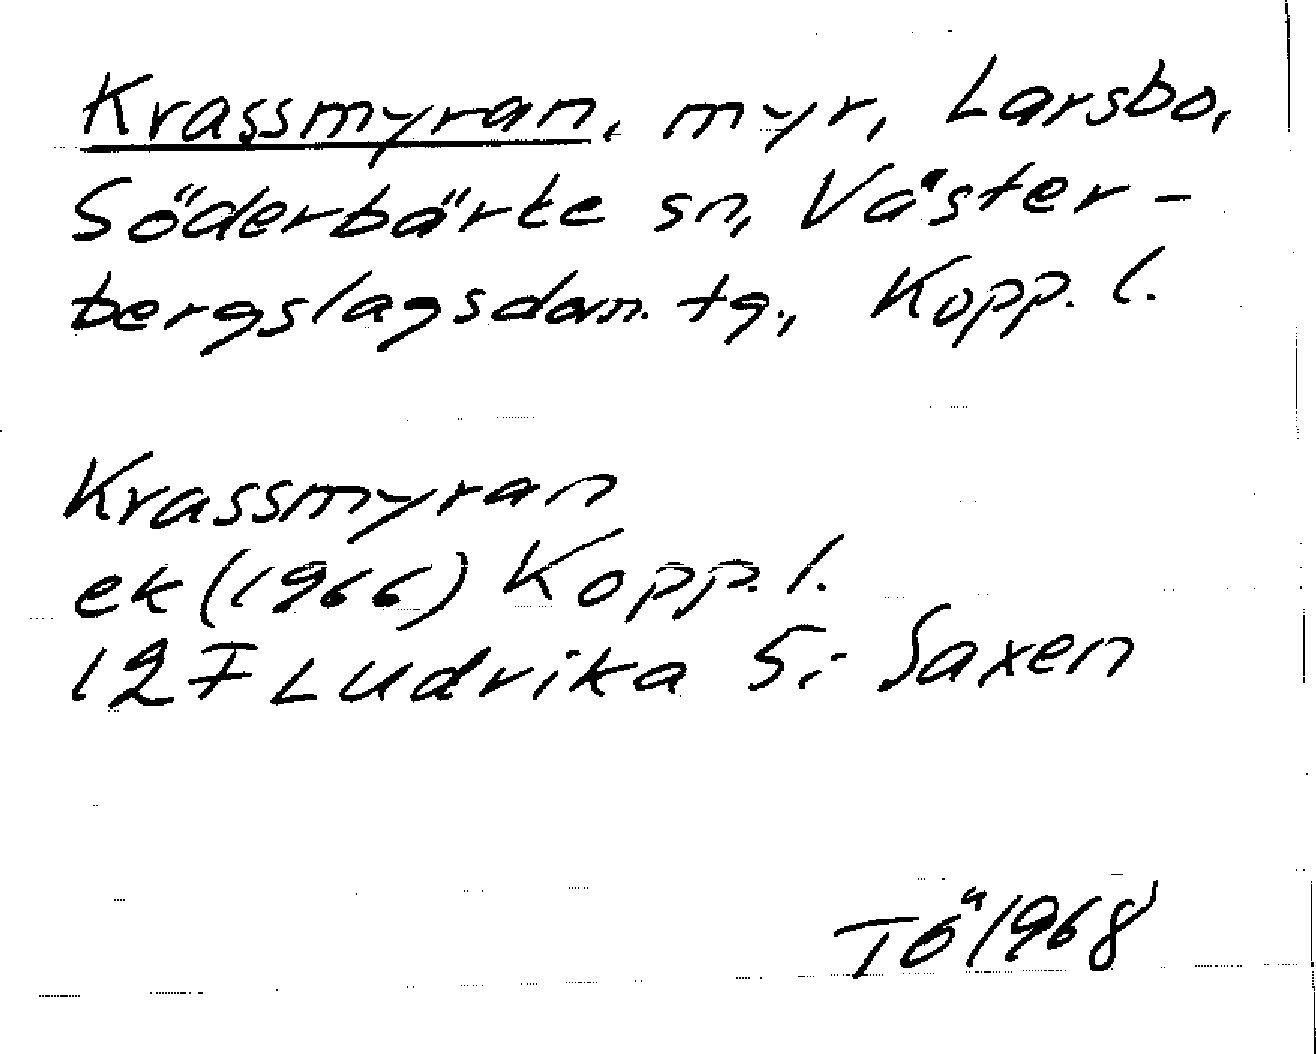 Krassmyran, myr, Larsbo,
Söderbärke sn, Väster-
bergslagsdom. tg., Kopp. l.
Krassmyran
ek (1966) Kopp. l.
12 F Ludvika S:- Saxen
TÖ 1968